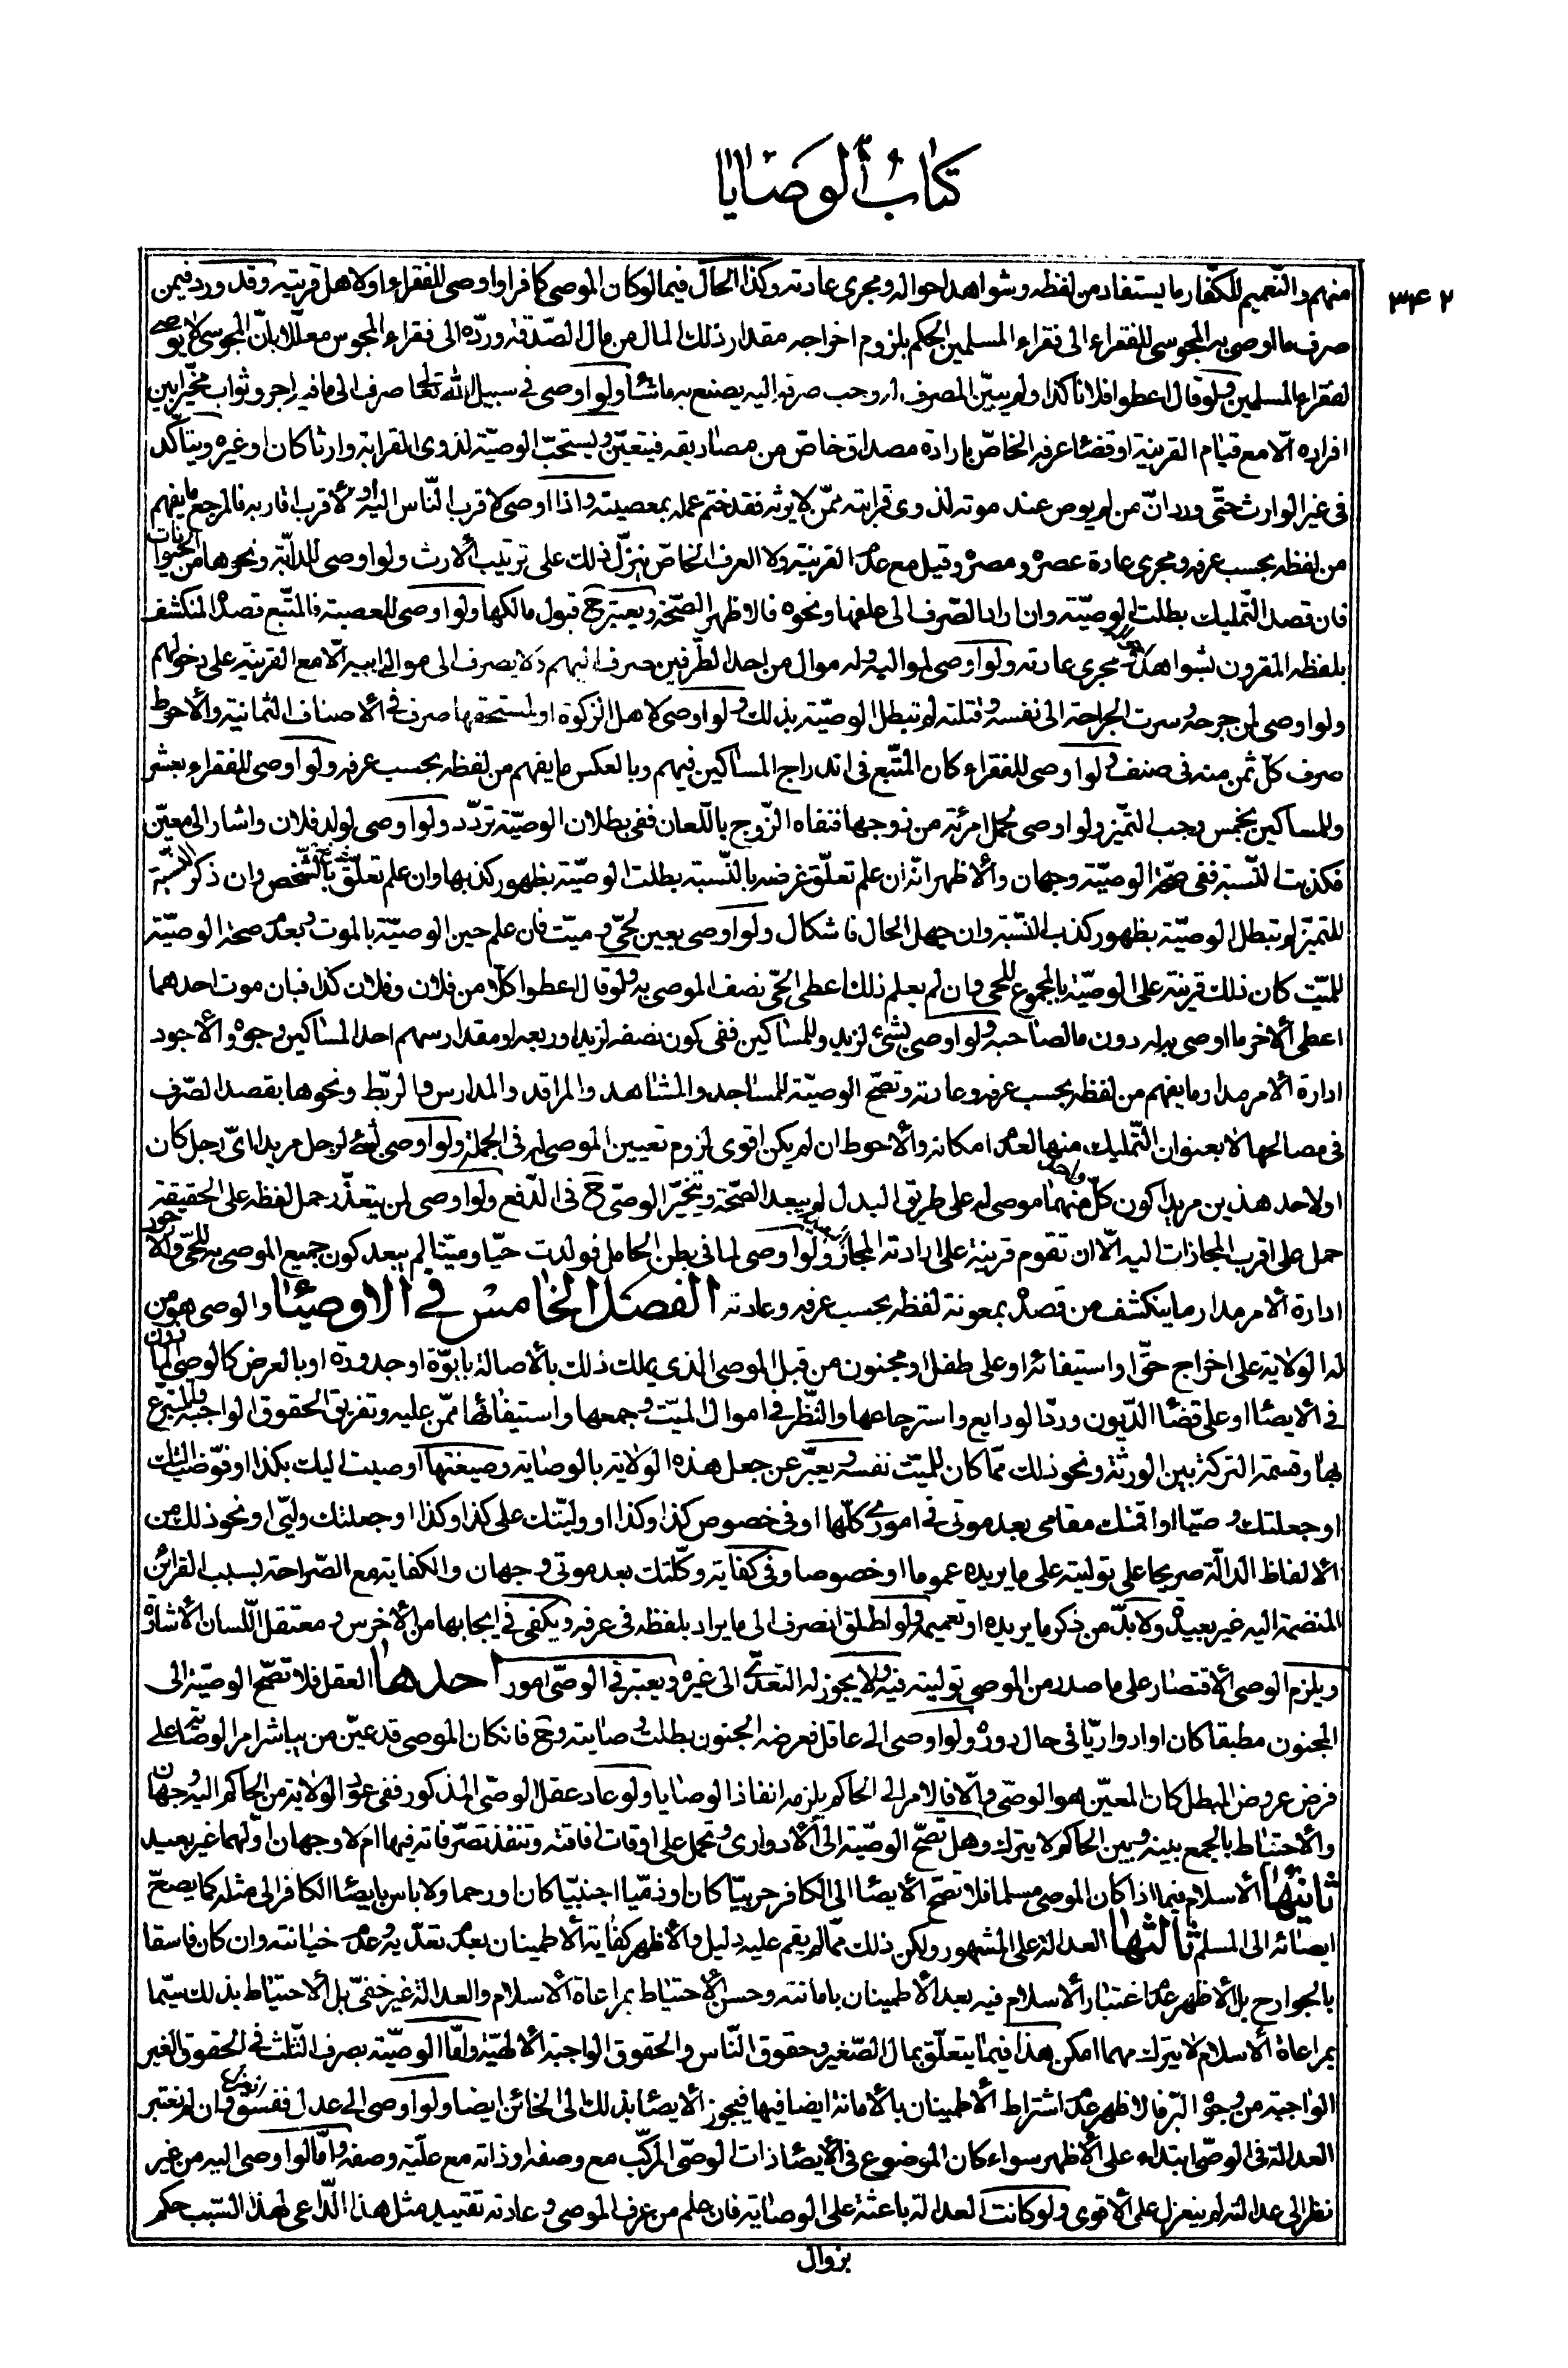 كتاب الوصايا
٣٤٢
منهم والتّعميم للكفّار ما يستفاد من لفظه وشواهد احواله ومجرى عادته وكذا الحال فيما لو كان الموصى كافرا واوصى للفقراء او لاهل قريته وقد ورد فيمن
صرف ما اوصى به المجوسى للفقراء الى فقراء المسلمين الحكم بلزوم اخراجه مقدار ذلك المال من مال الصّدقة وردّه الى فقراء المجوس معلّلا بانّ المجوسى لا يوصى
لفقراء المسلمين ولو قال اعطوا فلانا كذا ولم يبيّن المصرف له وجب صرفه اليه يصنع به ما شاء ولو اوصى فى سبيل الله تعالى صرف الى ما فيه اجر وثواب مخيّرا بين
افراده الّا مع قيام القرينة او قضاء عرفه الخاصّ بارادة مصداق خاصّ من مصاديقه فيتعيّن ويستحبّ الوصيّة لذوى القرابة وارثا كان او غيره ويتاكّد
فى غير الوارث حتّى ورد انّ من لم يوص عند موته لذوى قرابته ممّن لا يرثه فقد ختم عمله بمعصيته واذا اوصى لاقرب النّاس اليه او لأقرب اقاربه فالمرجع ما يفهم
من لفظه بحسب عرفه ومجرى عادة عصره ومصره وقيل مع عدم القرينة ولا العرف الخاصّ ينزّل ذلك على ترتيب الأرث ولو اوصى للدابّة ونحوها من الحيوانات
فان قصد التّمليك بطلت الوصيّة وان اراد الصّرف الى علفها ونحوه فالاظهر الصّحّة ويعتبر ح قبول مالكها ولو اوصى للعصبة فالمتّبع قصده المنكشف
بلفظه المقرون بشواهد مجرى عادته ولو اوصى لمواليه وله موال من احد الطّرفين صرف اليهم ولا يصرف الى موالى ابيه الّا مع القرينة على دخولهم
ولو اوصى لمن جرحه وسرت الجراحة الى نفسه وقتلته لم تبطل الوصيّة بذلك ولو اوصى لاهل الزكوة او لمستحقها صرف فى الأصناف الثمانية والأحوط
صرف كلّ ثمن منه فى صنف ولو اوصى للفقراء كان المتّبع فى اندراج المساكين فيهم وبالعكس ما يفهم من لفظه بحسب عرفه ولو اوصى للفقراء بعشر
وللمساكين بخمس وجب التميّز ولو اوصى لحمل امرئة من زوجها فنفاه الزّوج باللّعان ففى بطلان الوصيّة تردّد ولو اوصى لولد فلان واشار الى معيّن
فكذبت النّسبة ففى صحّة الوصيّة وجهان والأظهر انّه ان علم تعلّق غرضه بالنّسبة بطلت الوصيّة بظهور كذبها وان علم تعلّق بالشّخص وان ذكر النّسبة
للتميّز لم تبطل الوصيّة بظهور كذب النّسبة وان جهل الحال فاشكال ولو اوصى بعين لحىّ وميّت فان علم حين الوصيّة بالموت وبعدم صحّة الوصيّة
للميّت كان ذلك قرينة على الوصيّة بالمجموع للحى وان لم يعلم ذلك اعطى الحىّ نصف الموصى به ولو قال اعطوا كلّا من فلان وفلان كذا فبان موت احدهما
اعطى الأخر ما اوصى به له دون ما لصاحبه ولو اوصى بشىء لزيد وللمساكين ففى كون نصفه لزيد او ربعه او مقدار سهم احد المساكين وجوه والأجود
ادارة الأمر مدار ما يفهم من لفظه بحسب عرفه وعادته وتصحّ الوصيّة للمساجد والمشاهد والمراقد والمدارس والرّبط ونحوها بقصد الصّرف
فى مصالحها لا بعنوان التّمليك منها لعدم امكانه والأحوط ان لم يكن اقوى لزوم تعيين الموصى له فى الجملة ولو اوصى بشىء لرجل مريدا اىّ رجل كان
او لاحد هذين مريدا كون كلّ واحد منهما موصى له على طريق البدل لم يبعد الصّحّة ويتخيّر الوصىّ ح فى الدّفع ولو اوصى لمن يتعذّر حمل لفظه على الحقيقة
حمل على اقرب المجازات اليه الّا ان تقوم قرينة على ارادة المجاز ولو اوصى لما فى بطن الحامل فولدت حيّا وميّتا لم يبعد كون جميع الموصى به للحىّ والأجود
ادارة الأمر مدار ما ينكشف من قصده بمعونة لفظه بحسب عرفه وعادته الفصل الخامس فى الاوصياء والوصى هو من
له الولاية على اخراج حقّ او استيفائه او على طفل او مجنون من قبل الموصى الذى يملك ذلك بالأصالة بابوّة او جدودة او بالعرض كالوصى المأذون
فى الأيصاء او على قضاء الدّيون وردّ الودايع واسترجاعها والنّظر فى اموال الميّت وجمعها واستيفائها ممّن عليه وتفريق الحقوق الواجبة والمتبرّع
بها وقسمة التركة بين الورثة ونحو ذلك ممّا كان للميّت نفسه ويعبّر عن جعل هذه الولاية بالوصاية وصيغتها اوصيت اليك بكذا او فوّضت اليك
او جعلتك وصيّا او اقمتك مقامى بعد موتى فى امورى كلّها او فى خصوص كذا وكذا او ولّيتك على كذا وكذا او جعلتك وليّى او نحو ذلك من
الألفاظ الدالّة صريحا على توليته على ما يريده عموما او خصوصا وفى كفاية وكّلتك بعد موتى وجهان والكفاية مع الصّراحة بسبب القرائن
المنضمة اليه غير بعيد ولا بدّ من ذكر ما يريده او تعميمه ولو اطلق انصرف الى ما يراد بلفظه فى عرفه ويكفى فى ايجابها من الأخرس ومعتقل اللّسان الأشارة
ويلزم الوصى الأقتصار على ما صدر من الموصى توليته فيه ولا يجوز له التعدّى الى غيره ويعتبر فى الوصّى امور احدها العقل فلا تصحّ الوصيّة الى
المجنون مطبقا كان او ادواريّا فى حال دوره ولو اوصى الى عاقل فعرضه الجنون بطلت وصايته وح فان كان الموصى قد عيّن من يباشر امر الوصاية على
فرض عروض المبطل كان المعيّن هو الوصّى والّا فالأمر الى الحاكم يلزمه انفاذ الوصايا ولو عاد عقل الوصّى المذكور ففى عود الولاية من الحاكم اليه وجهان
والأحتياط بالجمع بينه وبين الحاكم لا يترك وهل تصحّ الوصيّة الى الأدوارى وتحمل على اوقات افاقته وتنفذ تصرّفاته فيها ام لا وجهان اوّلهما غير بعيد
ثانيها الأسلام فيما اذا كان الموصى مسلما فلا تصحّ الأيصاء الى الكافر حربيّا كان او ذمّيا اجنبيّا كان او رحما ولا باس بايصاء الكافر الى مثله كما يصحّ
ايصائه الى المسلم ثالثها العدالة على المشهور ولكن ذلك ممّا لم يقم عليه دليل والأظهر كفاية الأطمينان بعدم تعدّيه وعدم خيانته وان كان فاسقا
بالجوارح بل الأظهر عدم اعتبار الأسلام فيه بعد الأطمينان بامانته وحسن الأحتياط بمراعاة الأسلام والعدالة غير خفىّ بل الأحتياط بذلك سيّما
بمراعاة الأسلام لا يترك مهما امكن هذا فيما يتعلّق بمال الصّغير وحقوق النّاس والحقوق الواجبة الألهيّة وامّا الوصيّة بصرف الثّلث فى الحقوق الغير
الواجبة من وجوه البرّ فالاظهر عدم اشتراط الأطمينان بالأمانة ايضا فيها فيجوز الأيصاء بذلك الى الخائن ايضا ولو اوصى الى عدل ففسق فان لم نعتبر
العدالة فى الوصّى ابتداء على الأظهر سواء كان الموضوع فى الأيصاء ذات الوصّى المركّب مع وصفه او ذاته مع علّية وصفه وامّا لو اوصى اليه من غير
نظر الى عدالته لم ينعزل على الأقوى ولو كانت العدالة باعثة على الوصاية فان علم من عرف الموصى وعادته تقييد مثل هذا الدّاعى لهذا السّبب حكم
بزوال